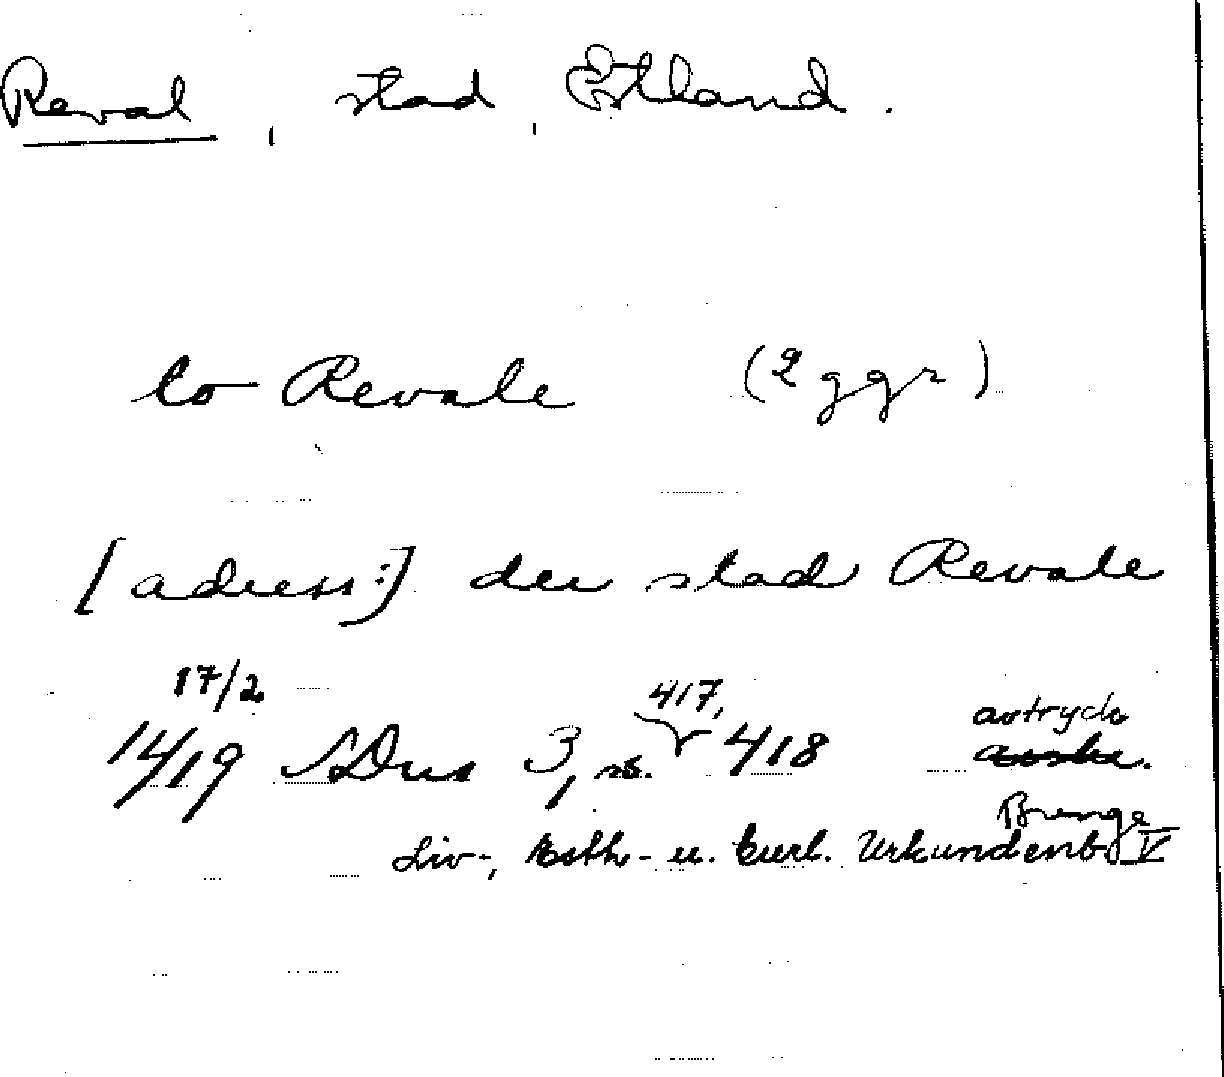 Reval, stad, Estland.
to Revale (2 ggr)
[adress:] der stad Revale
17/2 417, avtryck
1419 SDns 3, s. 418
Bunge
Liv-, Esth- u. Curl. Urkundenb. V